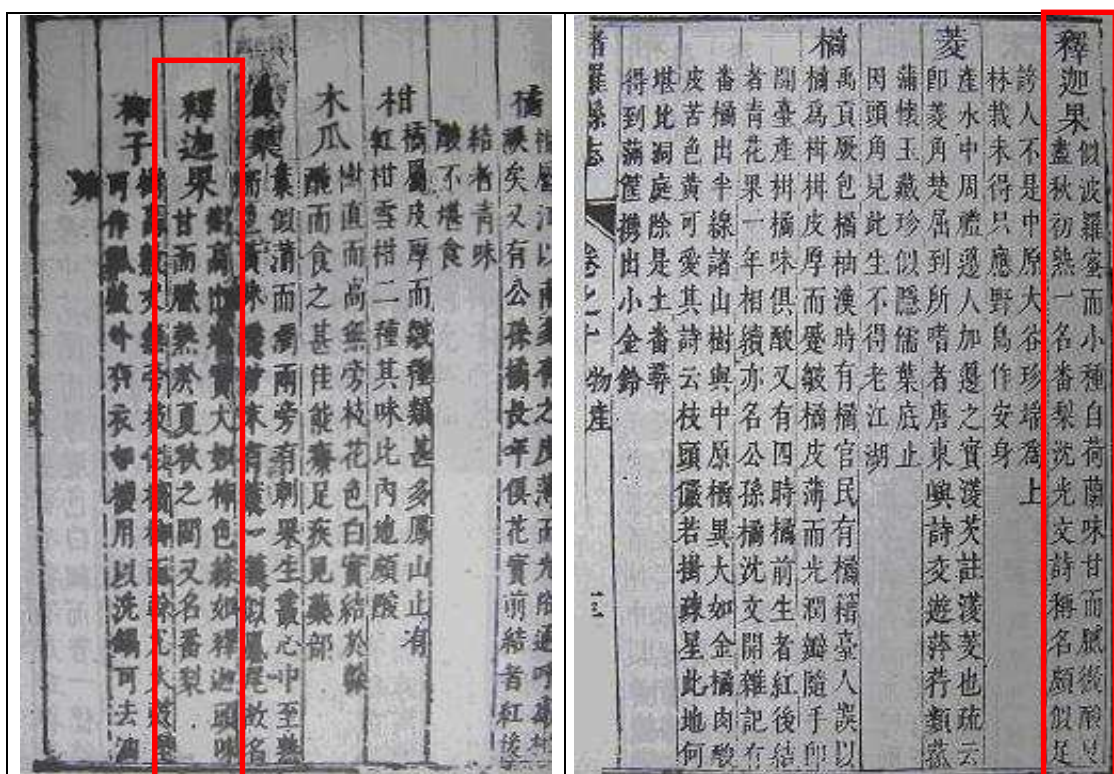 橘
誤矣又有公孫橘長年俱花實前結者紅後
結者青味
酸不堪食
柑
橘屬皮厚而皺種類甚多鳳山止有
紅柑雪柑二種其味比內地頗酸
木瓜
樹直而高無旁枝花色白實結於榦
醃而食之甚佳能療足疾見藥部
葉似蒲而闊兩旁有刺果生叢心中至熟
而色黃味甘末有葉一叢似鳳尾故名
釋迦果
樹高出墻實大如柿色綠如釋迦頭味
甘而膩熟於夏秋之間又名番梨
椰子
可作瓢殼外有衣如櫻用以洗錫可去油
釋迦果
似波羅蜜而小種自荷蘭味甘而膩微酸
盡秋初熟一名番梨沈光文詩稱名頗似足
誇人不是中原大谷珍端為上
林栽未得只應野鳥作安身
菱
產水中周禮籩人加籩之實淩芡註淩菱也疏云
即菱角楚屈到所嗜者唐東嶼詩交遊萍荇類菰
蒲懷玉藏珍似隱儒葉底止
因頭角見此生不得老江湖
橘
禹貢厥包橘柚漢時有橘官民有橘籍臺人誤以
橘為柑柑皮厚而蹙皺橘皮薄而光潤瓣隨手即
開臺產柑橘味俱酸又有四時橘前生者紅後結
者青花果一年相續亦名公孫橘沈文開雜記有
番橘出半線諸山樹與中原橘異大如金橘肉酸
皮苦色黃可愛其詩云枝頭儼若掛疎星此地何
堪比洞庭除是土番尋
得到滿筐攜出小金鈴
羅縣志 卷之十 物產